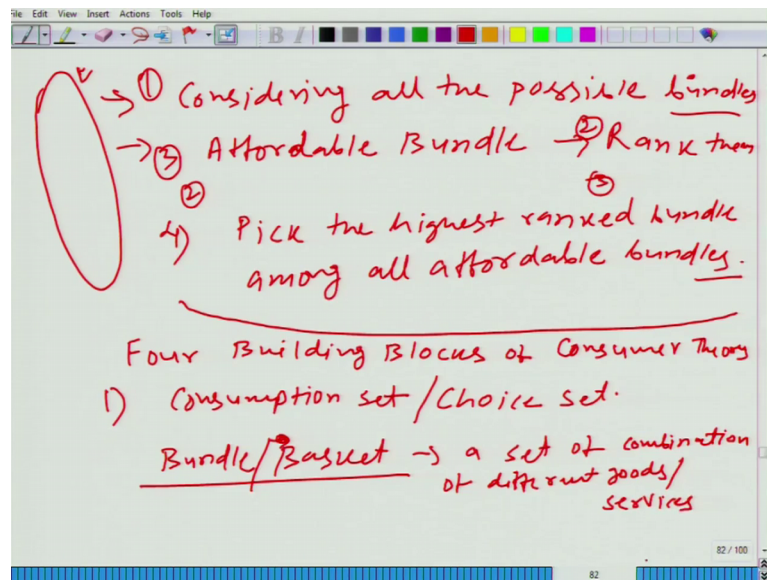 File Edit View Insert Actions Tools Help
→ ① Considering all the possible bundles
→ ③ Affordable Bundle → ② Rank them
② ③
4) Pick the highest ranked bundle
among all affordable bundles.
Four Building Blocks of Consumer Theory
1) Consumption set/Choice set.
Bundle/Basket → a set of combination
of different goods/
services
82 / 100
82